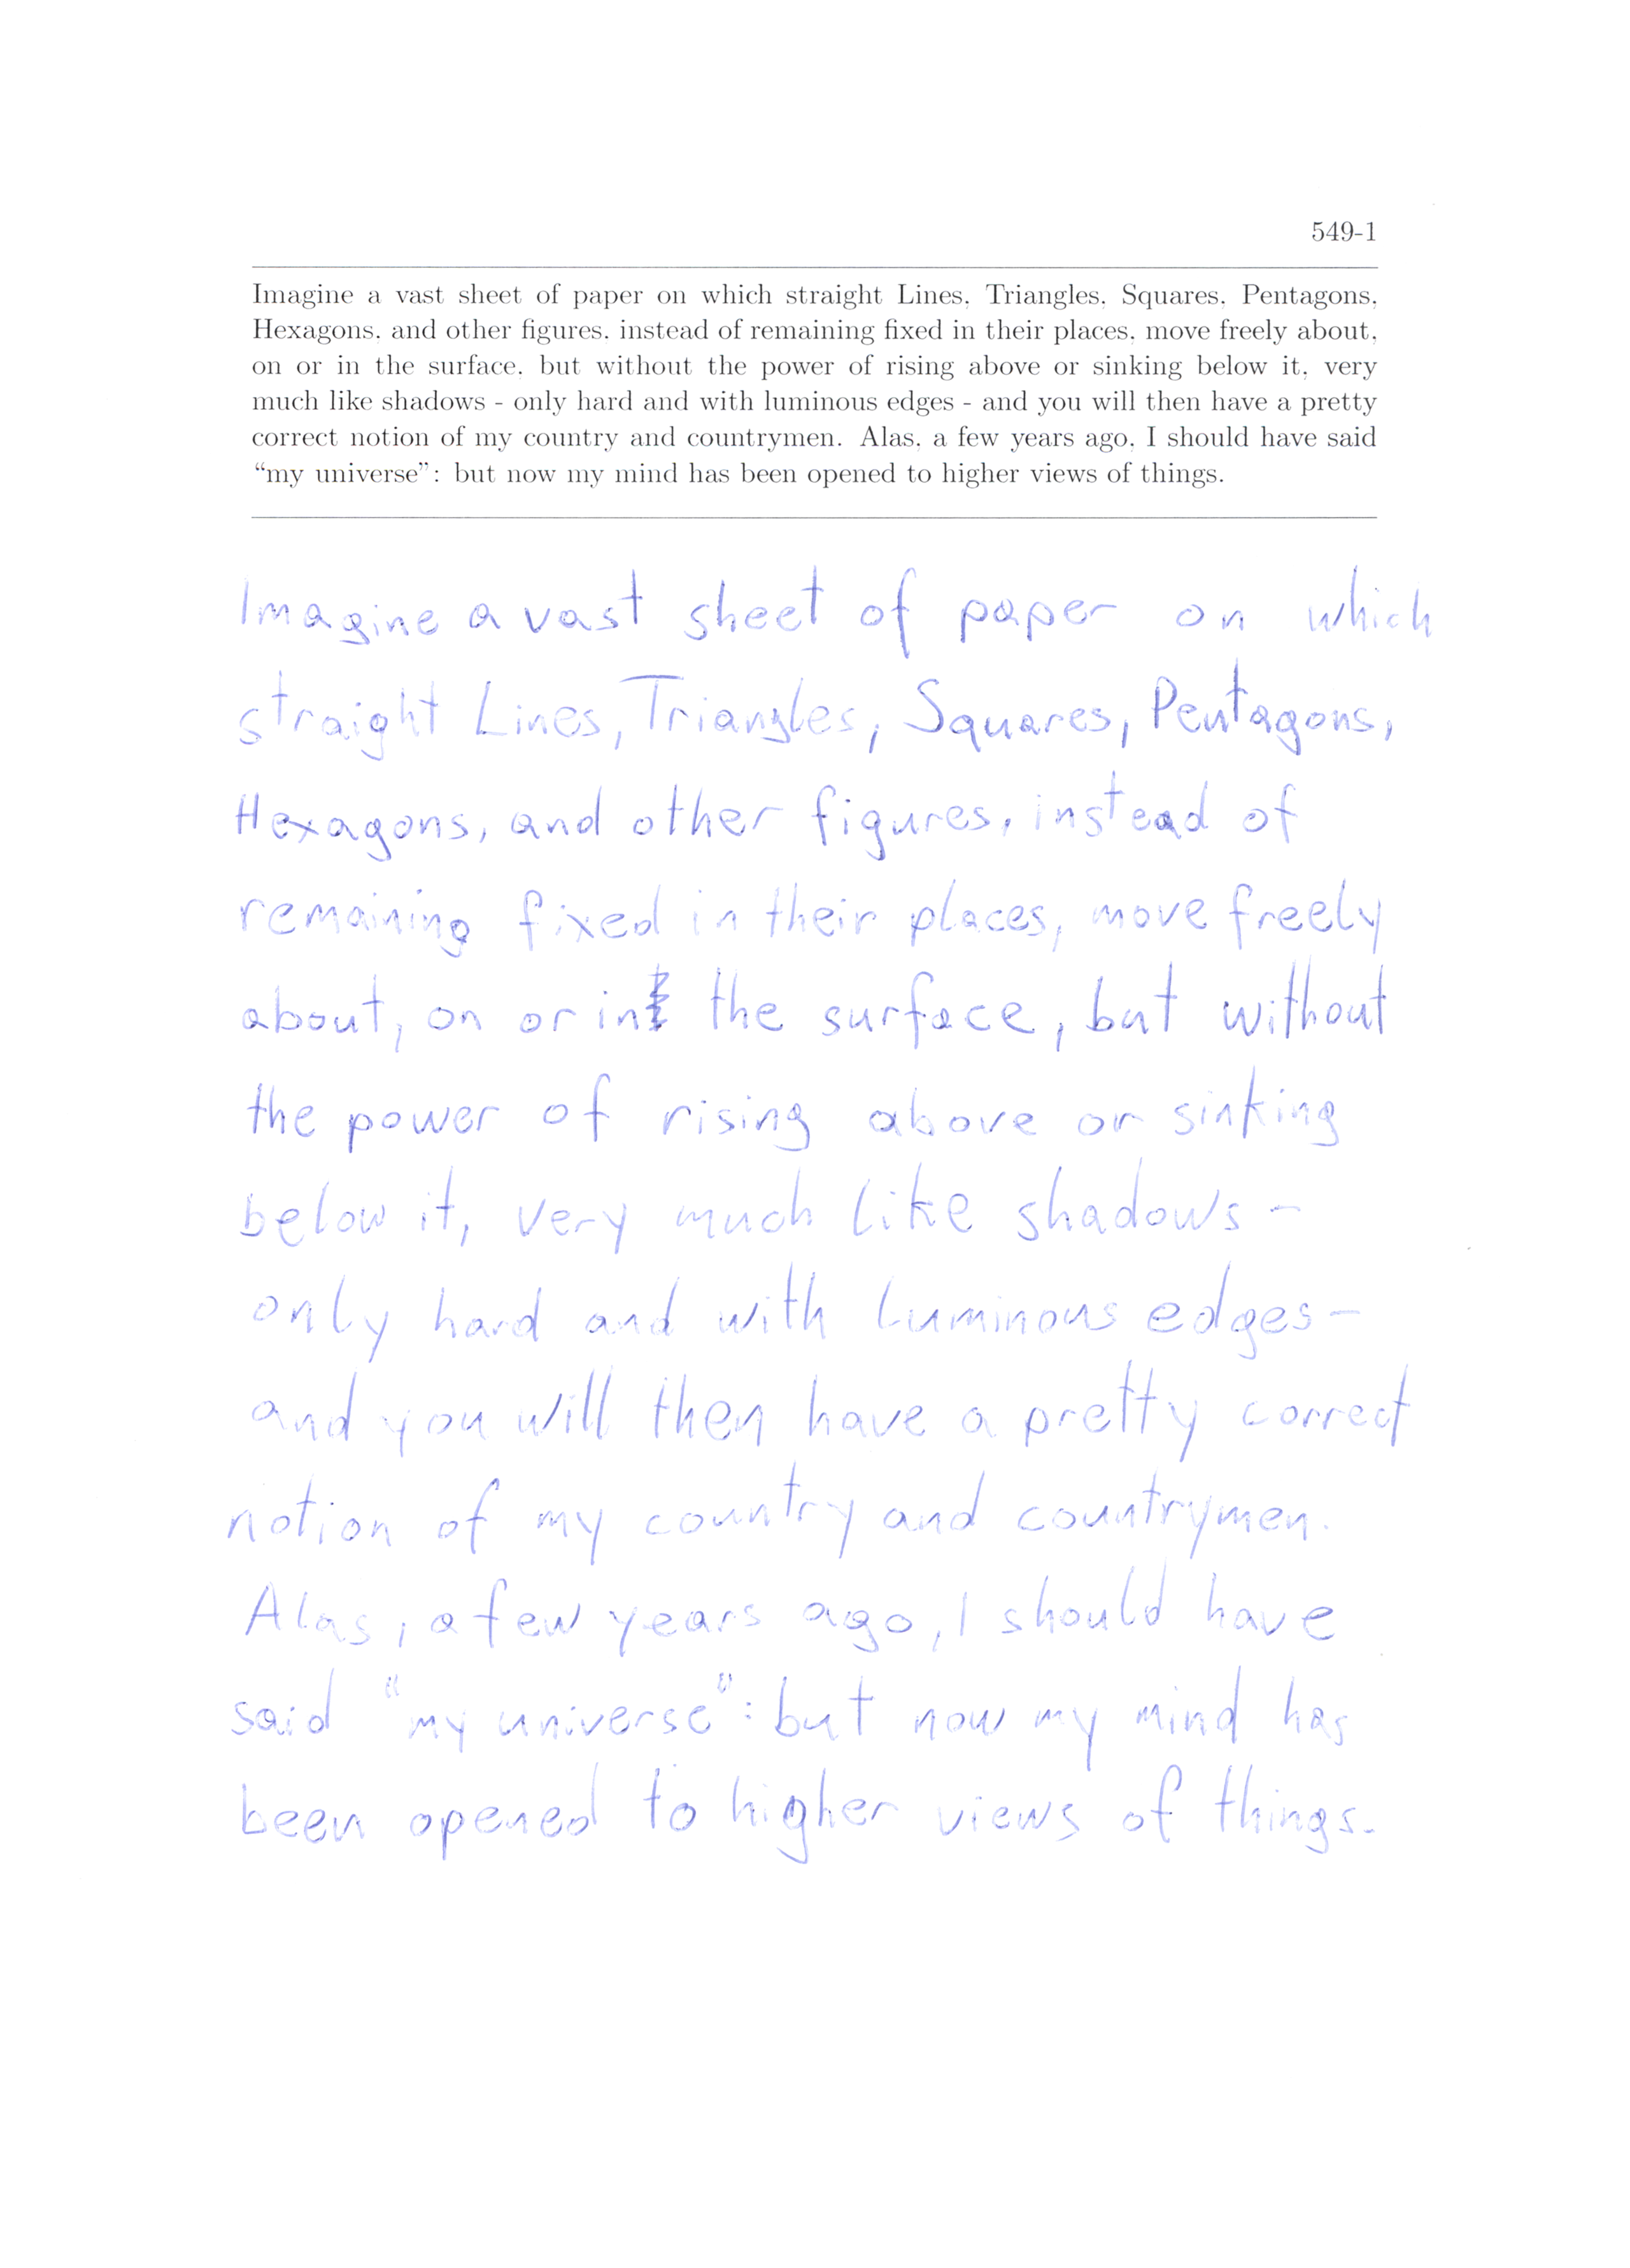 549-1
Imagine a vast sheet of paper on which straight Lines, Triangles, Squares, Pentagons,
Hexagons, and other figures, instead of remaining fixed in their places, move freely about,
on or in the surface, but without the power of rising above or sinking below it, very
much like shadows - only hard and with luminous edges - and you will then have a pretty
correct notion of my country and countrymen. Alas, a few years ago, I should have said
“my universe”: but now my mind has been opened to higher views of things.
Imagine a vast sheet of paper on which
straight Lines, Triangles, Squares, Pentagons,
Hexagons, and other figures, instead of
remaining fixed in their places, move freely
about, on or in the surface, but without
the power of rising above or sinking
below it, very much like shadows -
only hard and with luminous edges -
and you will then have a pretty correct
notion of my country and countrymen.
Alas, a few years ago, I should have
said "my universe": but now my mind has
been opened to higher views of things.